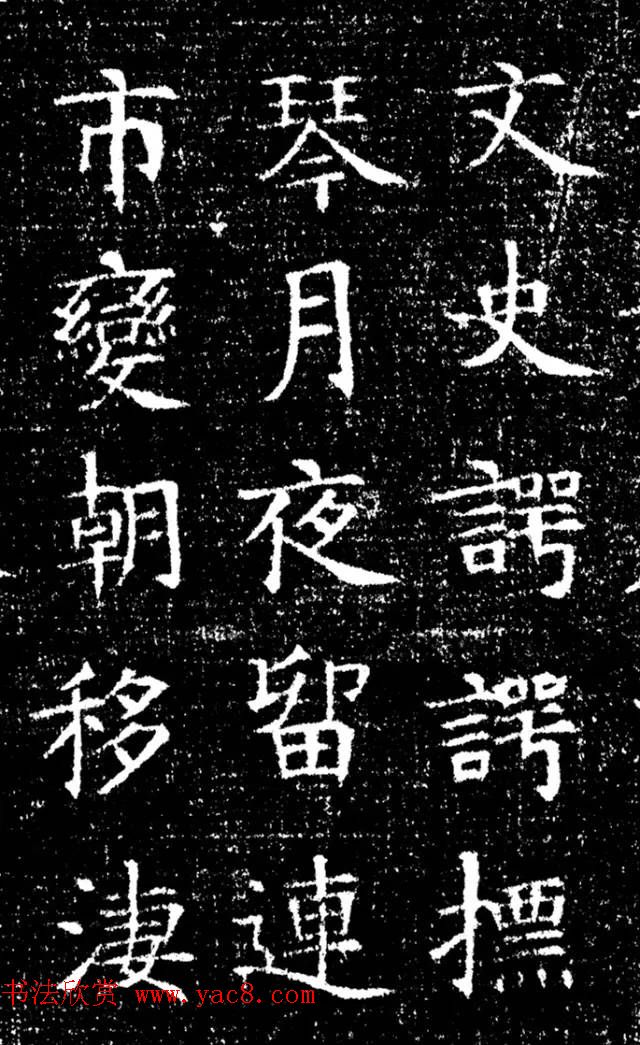 文史諤諤摽
琴月夜留連
市變朝移淒
书法欣赏 www.yac8.com